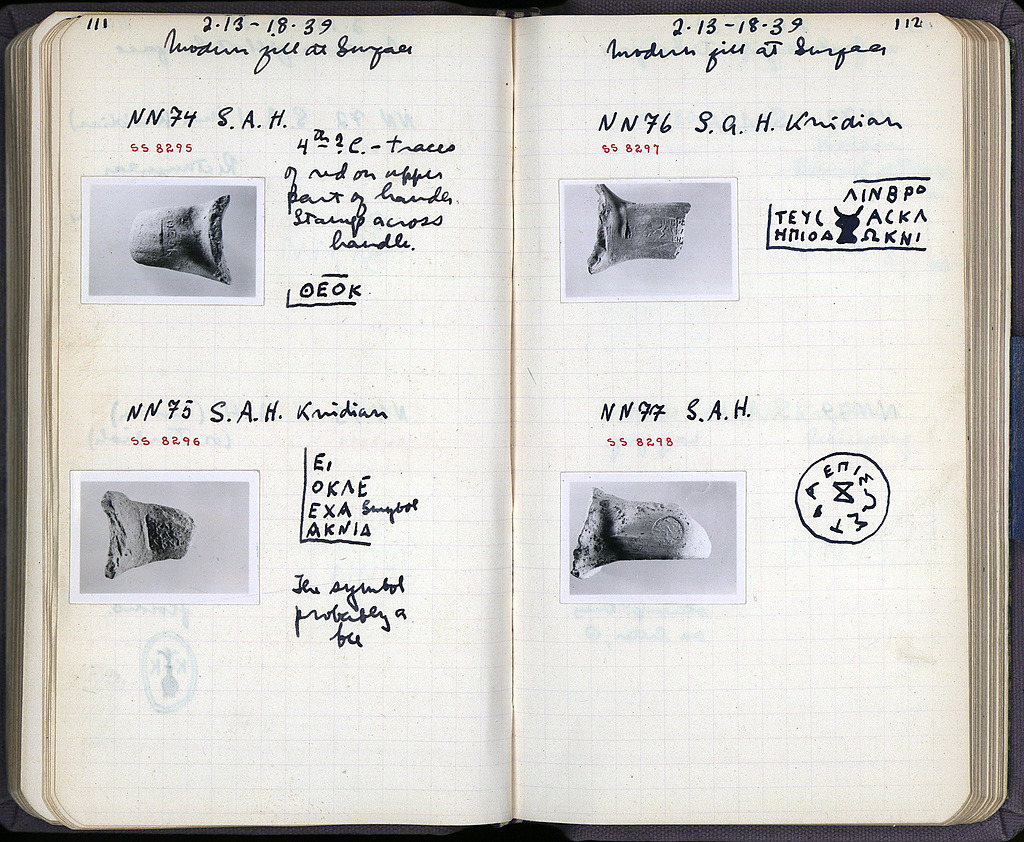 111
2·13-18·39
Modern fill at Surface
NN74 S.A.H.
SS 8295
4th? C. - traces
of red on upper
part of handle.
Stamp across
handle.
ΘΕΟΚ
NN75 S.A.H. Knidian
SS 8296
ΕΙ
ΟΚΛΕ
ΕΧΑ Symbol
ΑΚΝΙΔ
The symbol
probably a
bee
112
2·13-18·39
Modern fill at Surface
NN76 S.A.H. Knidian
SS 8297
ΛΙΝΒΡΟ
ΤΕΥΣ ΑΣΚΛ
ΗΠΙΟΔ ΩΚΝΙ
NN77 S.A.H.
SS 8298
ΕΠΙ